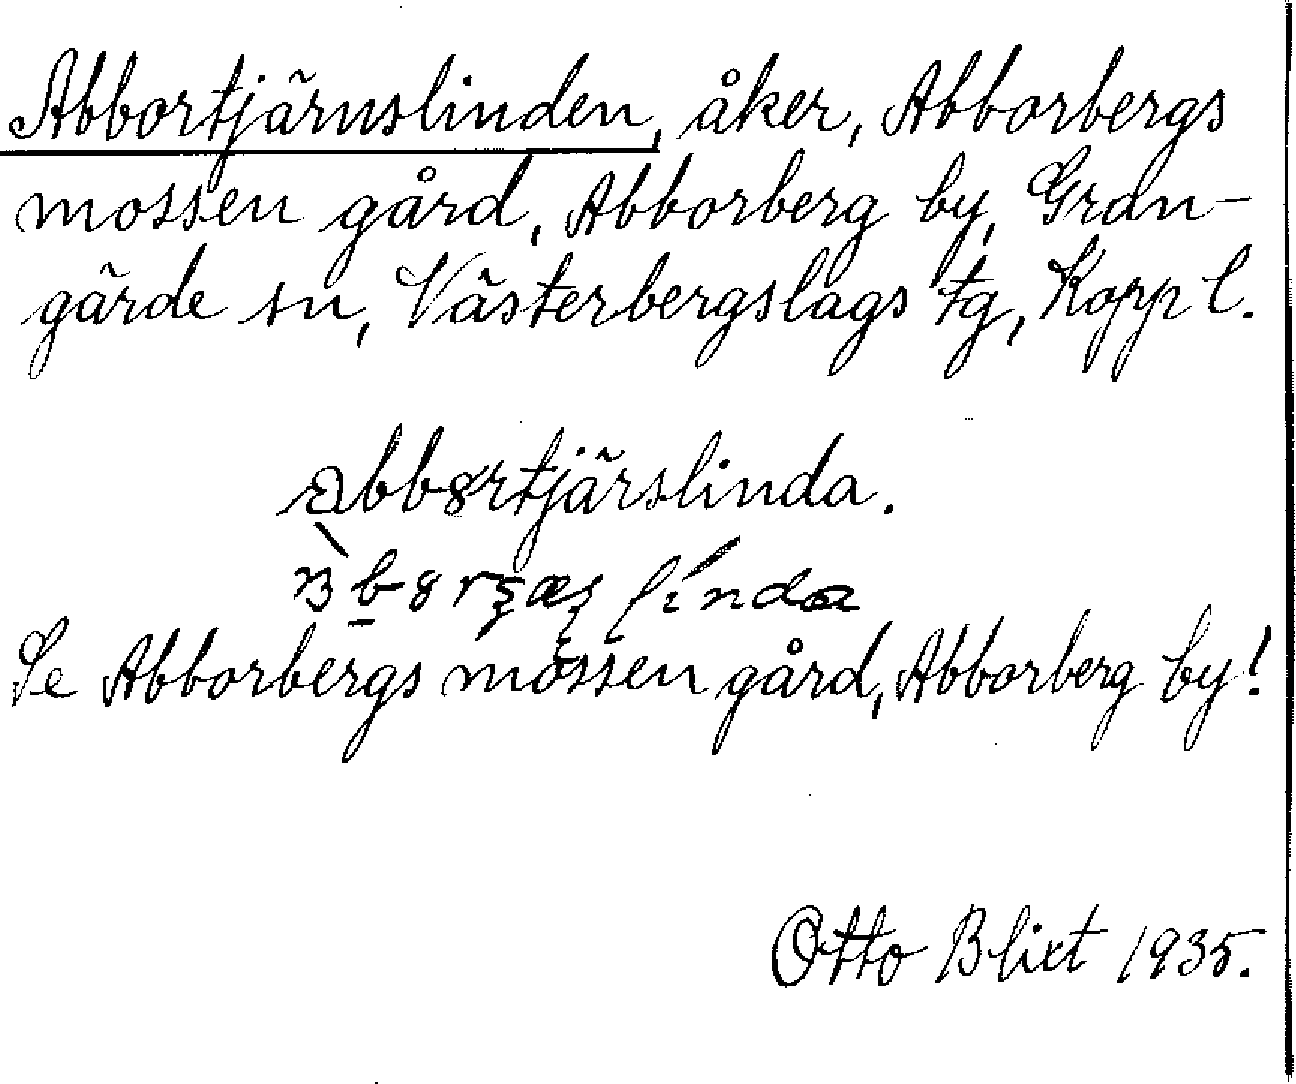 Abbortjärnslinden, åker, Abborbergs
mossen gård, Abborberg by, Gran-
gärde sn, Västerbergslags tg, Kopp l.
abbortjärslinda.
Se Abborbergs mossen gård, Abborberg by!
Otto Blixt 1935.